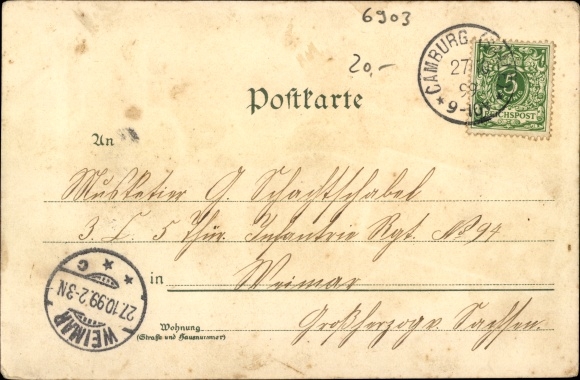 6903
20,-
CAMBURG
27
99
9-10
5
REICHSPOST
Postkarte
An
Musketier G. Schachtschabel
3. C. 5 Thür. Infantrie Rgt. No 94
in Weimar
Großherzogv. Sachsen.
Wohnung
(Straße und Hausnummer)
WEIMAR
27.10.99.2-3N
C